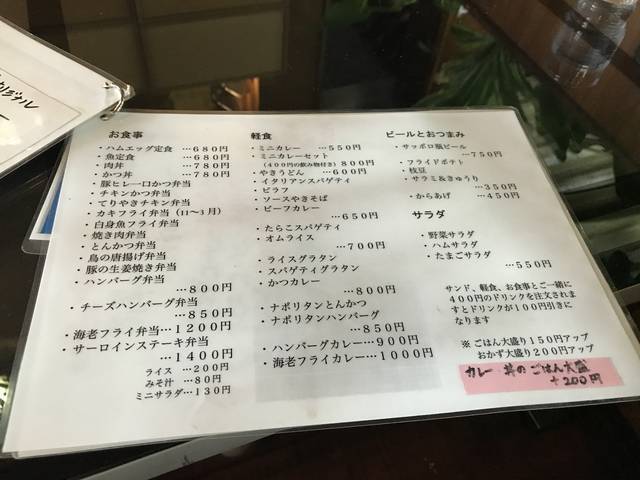 リジナル
お食事
・ハムエッグ定食 …680円
・魚定食 …680円
・肉丼 …780円
・かつ丼 …780円
・豚ヒレ一口かつ弁当
・チキンかつ弁当
・てりやきチキン弁当
・カキフライ弁当(11～3月)
・白身魚フライ弁当
・焼き肉弁当
・とんかつ弁当
・鳥の唐揚げ弁当
・豚の生姜焼き弁当
・ハンバーグ弁当
…800円
・チーズハンバーグ弁当
…850円
・海老フライ弁当…1200円
・サーロインステーキ弁当
…1400円
ライス …200円
みそ汁 …80円
ミニサラダ…130円
軽食
・ミニカレー …550円
・ミニカレーセット
(400円の飲み物付き)800円
・やきうどん …600円
・イタリアンスパゲティ
・ピラフ
・ソースやきそば
・ビーフカレー
…650円
・たらこスパゲティ
・オムライス
…700円
・ライスグラタン
・スパゲティグラタン
・かつカレー
…800円
・ナポリタンとんかつ
・ナポリタンハンバーグ
…850円
・ハンバーグカレー…900円
・海老フライカレー…1000円
ビールとおつまみ
・サッポロ瓶ビール
…750円
・フライドポテト
・枝豆
・サラミ&きゅうり
…350円
・からあげ …450円
サラダ
・野菜サラダ
・ハムサラダ
・たまごサラダ
…550円
サンド、軽食、お食事とご一緒に
400円のドリンクを注文されま
すとドリンクが100円引きに
なります
※ ごはん大盛り150円アップ
おかず大盛り200円アップ
カレー 丼のごはん大盛
+200円